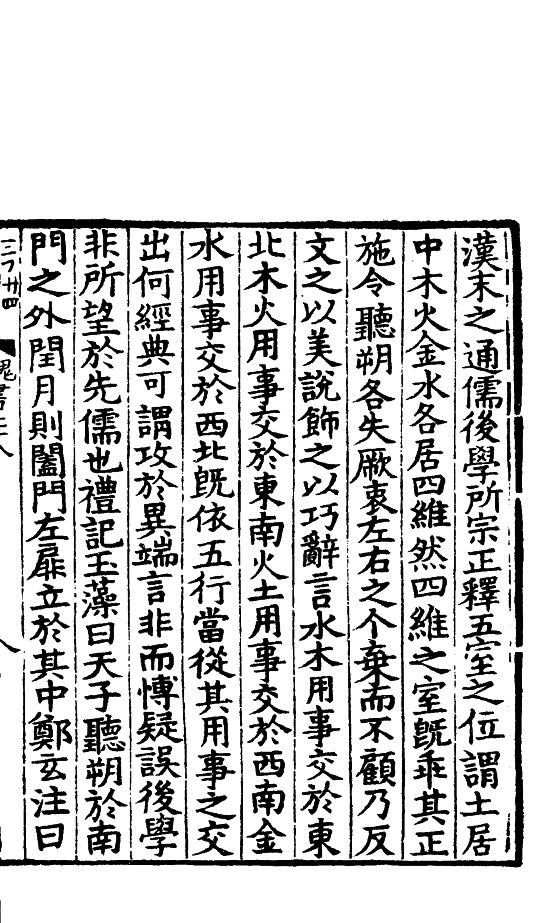 漢末之通儒後學所宗正釋五室之位謂土居
中木火金水各居四維然四維之室旣乖其正
施令聽朔各失厥衷左右之个棄而不顧乃反
文之以美說飾之以巧辭言水木用事交於東
北木火用事交於東南火土用事交於西南金
水用事交於西北旣依五行當從其用事之交
出何經典可謂攻於異端言非而愽疑誤後學
非所望於先儒也禮記玉藻曰天子聽朔於南
門之外閏月則闔門左扉立於其中鄭玄注曰